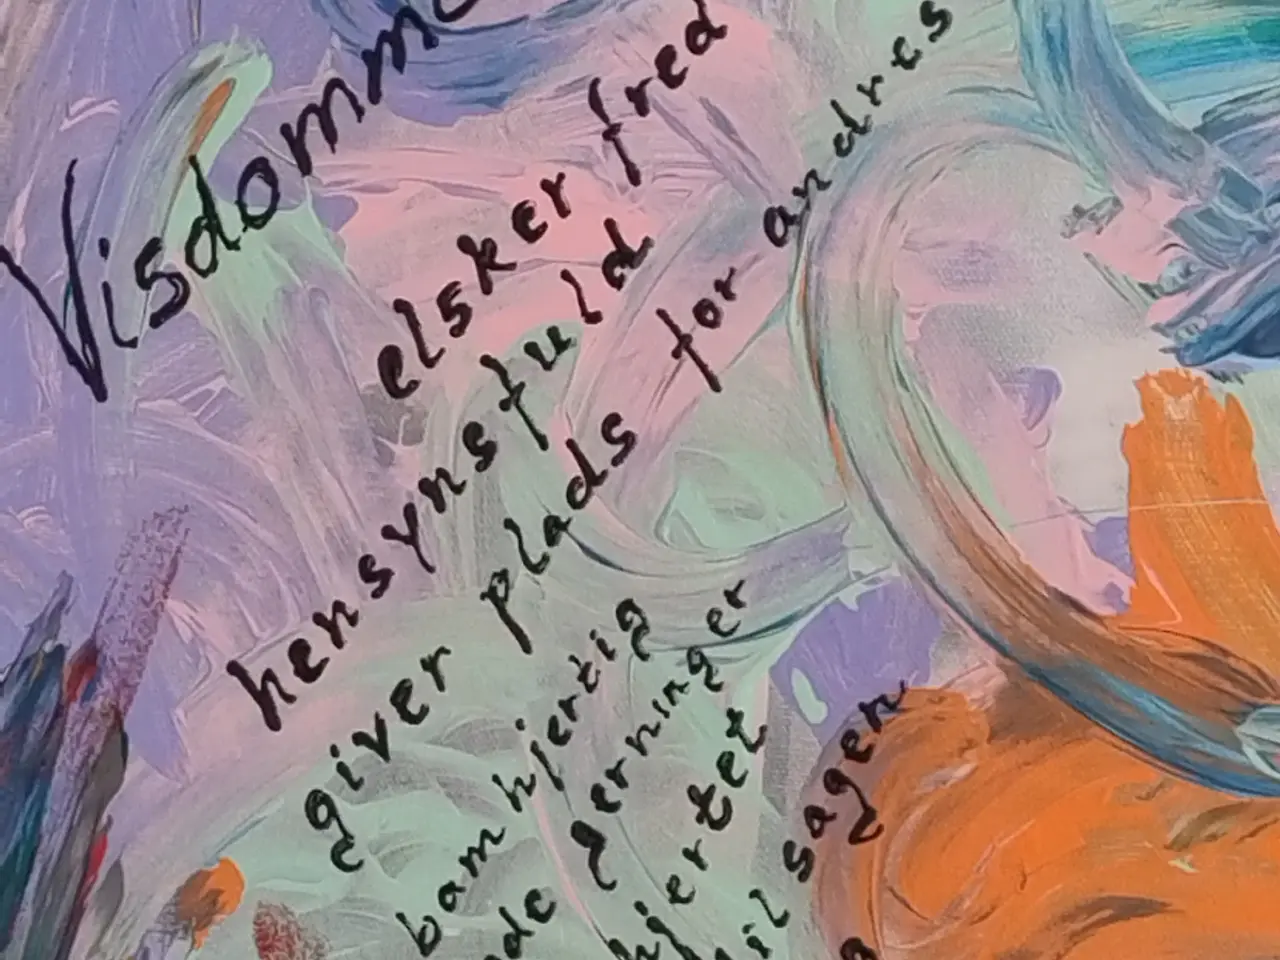 Visdomm
elsker fred
hensynsfuld
giver plads for andres
bamhjertig
de gerninger
hjertet
il sagen